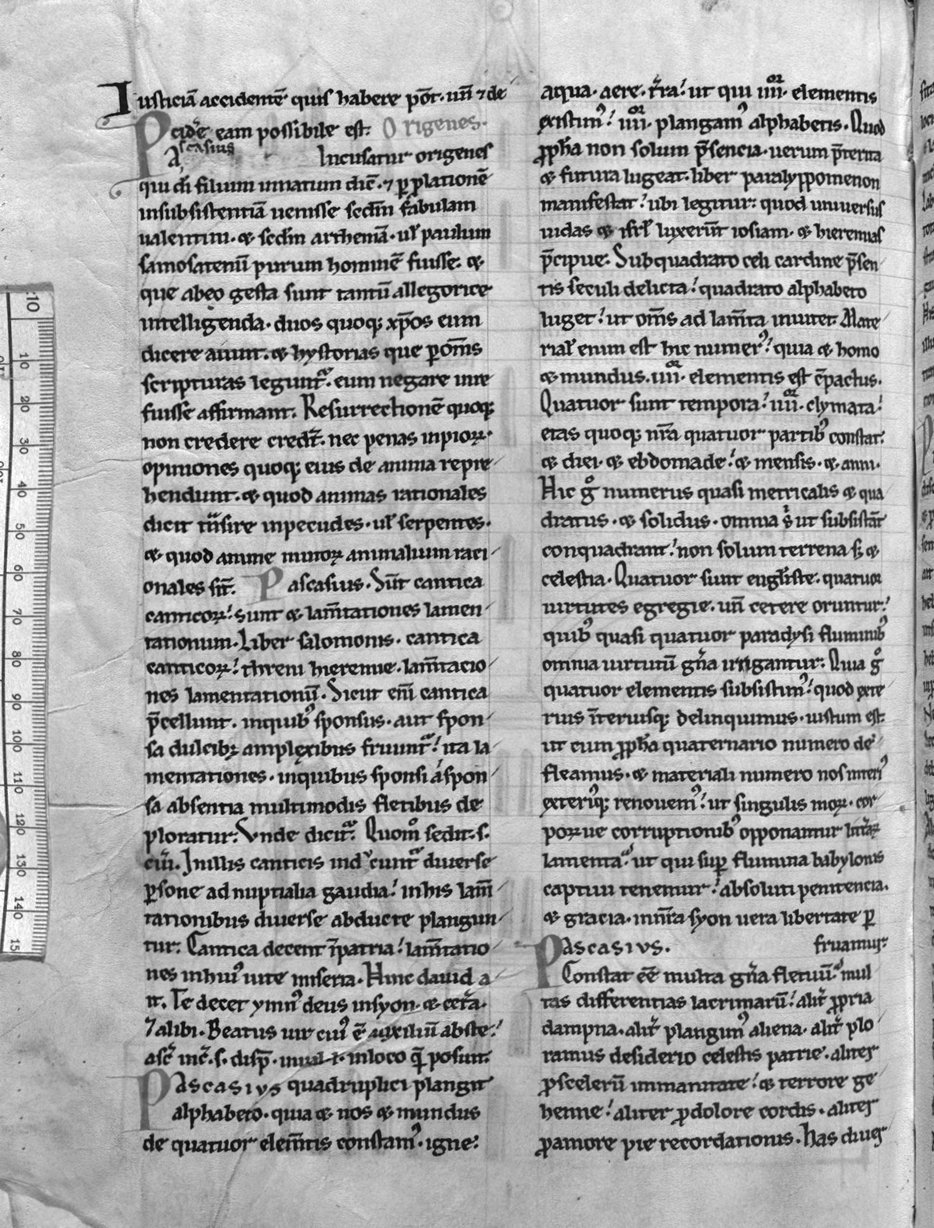 Iusticiā accidentē quis habere pōt. un̄ ⁊ de
cid̄e eam possibile est: Origenes.
Pascasius Incusatur origenes
qui dn̄ filium innatum dic̄. ⁊ ꝑ plationē
insubsistentiā uenisse sedm̄ fabulam
ualentini. & sedm̄ arthemā. ul̓ paulum
samosatenū purum hominē fuisse. &
que abeo gesta sunt tantū allegorice
intelligenda. duos quoq; xp̄os eum
dicere aiunt. & hystorias que ꝑ om̄s
scripturas legunt᷑. eum negare uere
fuisse affirmant. Resurrectionē quoq;
non credere credit᷑. nec penas inpioꝝ.
opiniones quoq; eius de anima repre
hendunt. & quod animas rationales
dicit tn̄sire inpecudes. ul̓ serpentes.
& quod anime mutoꝝ animalium raci
onales sint. Pascasius. Sūt cantica
canticoꝝ: sunt & lam̄tationes lamen
tationum. Liber salomonis. cantica
canticoꝝ: threni hieremie. lam̄tacio
nes lamentationū. Sicut eni cantica
p̄cellunt. inquib᷒ sponsus. aut spon
sa dulcibꝫ amplexibus fruunt᷑: ita la
mentationes. inquibus sponsi a spon
sa absentia multimodis fletibus de
ploratur: Vnde dicit᷑. Quom̄ sedit. s.
ciui. Inillis canticis introducunt᷑ diuerse
ꝑsone ad nuptialia gaudia: inhis lam̄
tationibus diuerse abducte plangun
tur: Cantica decent īpatria: lam̄tatio
nes inhui᷒ uite miseria. Hinc dauid a
it. Te decet ymn᷒ deus insyon. & cet̄a.
⁊alibi. Beatus uir cui᷒ ē auxiliū abste:
asc̄ inc̄. s. disp̄. inual. l. inloco q̄ posuit
Pascasius quadruplici plangit
alphabeto. quia & nos & mundus
de quatuor elem̄tis constam᷒. igne:
aqua. aere. t̄ra: ut qui iiii.or elementis
existim᷒: iiii.or plangam᷒ alphabetis. Quod
ꝓpha non solum p̄sencia. uerum p̄terita
& futura lugeat. liber paralyppomenon
manifestat: ubi legitur: quod uniuersus
iudas & isrl̓ luxerūt iosiam. & hieremias
p̄cipue. Subquadrato celi cardine p̄sen
tis seculi delicta: quadrato alphabeto
luget: ut om̄s ad lam̄ta inuitet. Mate
rial̓ enim est hic numer᷒: quia & homo
& mundus. iiii.or elementis est c̄pactus.
Quatuor sunt tempora: iiii.or clymata:
etas quoq; nr̄a quatuor partib᷒ constat:
& diei. & ebdomade: & mensis. & anni.
Hic g̊ numerus quasi metricalis & qua
dratus. & solidus. omnia s̓ ut subsistāt
conquadrant: non solum terrena s; &
celestia. Quatuor sunt eugl̄iste. quatuor
uirtutes egregie. un̄ cetere oriuntur:
quib᷒ quasi quatuor paradysi fluminib᷒
omnia uirtutū gn̄a irrigantur: Quia g̊
quatuor elementis subsistim᷒: quod exte
rius īteriusq; delinquimus. iustum est
ut cum ꝓpha quaternario numero de
fleamus. & materiali numero nos interi᷒
exteriq; renouem᷒: ut singulis moꝝ. cor
poꝝ ue corruptionib᷒ opponamur litt̄aꝝ
lamenta: ut qui suꝑ flumina babylonis
captiui tenemur: absoluti penitencia.
& gracia. innr̄a syon uera libertate ꝑ
fruamur.
Pascasius.
Constat ēē multa gn̄a fletuū. mul
tas differentias lacrimarū: alit̄ ꝓpria
dampna. alit̄ plangim᷒ aliena. alit̄ plo
ramus desiderio celestis patrie. aliter
ꝓscelerū immanitate: & terrore ge
henne: aliter ꝓdolore cordis. aliter
ꝓamore pie recordationis. Has diuer